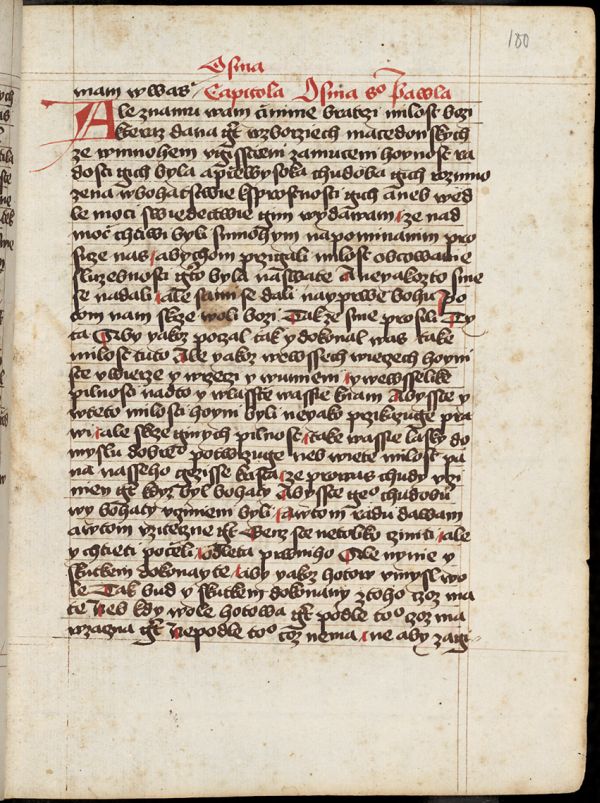 180
Osma
mam w was Capitola Osma So Pawla
Ale znamu wam činime bratrzi milost bozi
kteraz dana gt w zborziech macedonskych
ze w mnohem vgisstieni zamuceni hoynost ra
dosti gich byla a przewysoka chudoba gich rozmno
zena w bohatstwie k sprostnosti gich a neb wed
le moci swiedectwie gim wydawam ze nad
moč chtiwi byli s mnohym napominanim pro
siece nas abychom przigali milost obcowanie
sluzebnosti gto byla na swate A ne yakozto sme
se nadali ale sami se dali nayprwe bohu Po
tom nam skrze woli bozi Tak ze sme prosili Ty
ta Aby yakoz poczal tak y dokonal w was take
milost tuto Ale yakoz w ewssech wiecech hoyni
ste v wierze y w rzeczi y w vmieni y w ewsselike
pilnosti nadto y w lasste wassie k nam Abysste y
w teto milosti hoyni byli ne yako przikazuge pra
wi ale skrze ginych pilnost take wassie lasky do
myslu dobreo potwrzuge neb wiete milost pa
na nasseho gezisse krista ze pro was chudy vczi
nien gt kdyz byl bohaty Abysste geo chudobu
wy bohaty vczineni byli A w tom radu dawam
a w tom vzitecne gt Genz ste netoliko cziniti ale
y chtieti poceli od leta prwniho Ale nynie y
skutkem dokonayte aby yakoz hotowy vmysl wo
le Tak bud y skutkem dokonany z toho coz ma
te Neb kdy wole hotowa gt podle too coz ma
wzacna gt Ne podle too coz nema ne aby zagi